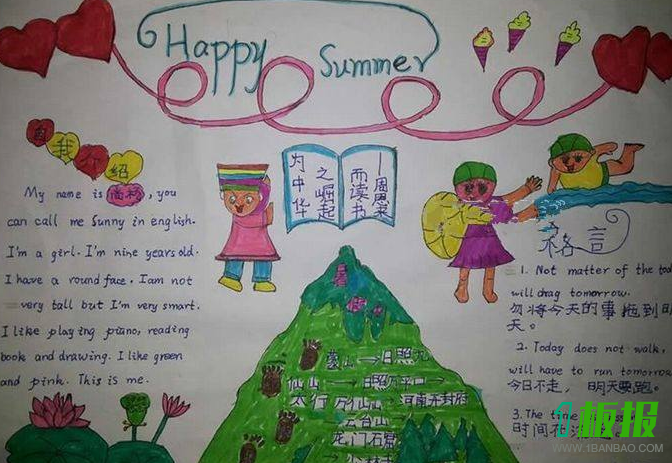 Happy Summer
自我介绍
My name is 潘杨, you
can call me Sunny in english.
I'm a girl. I'm nine years old.
I have a round face. I am not
very tall but I'm very smart.
I like playing piano, reading
book and drawing. I like green
and pink. This is me.
为中华
之崛起
而读书
—周恩来
格言
1. Not matter of the tod
will drag tomorrow.
勿将今天的事拖到明
天。
2. Today does not walk,
will have to run tomorrow
今日不走，明天要跑。
3. The time
时间
日照
仙山→日照万平口→
太行
河南开封府
云台山
龙门石窟
板报
WWW.1BANBAO.COM